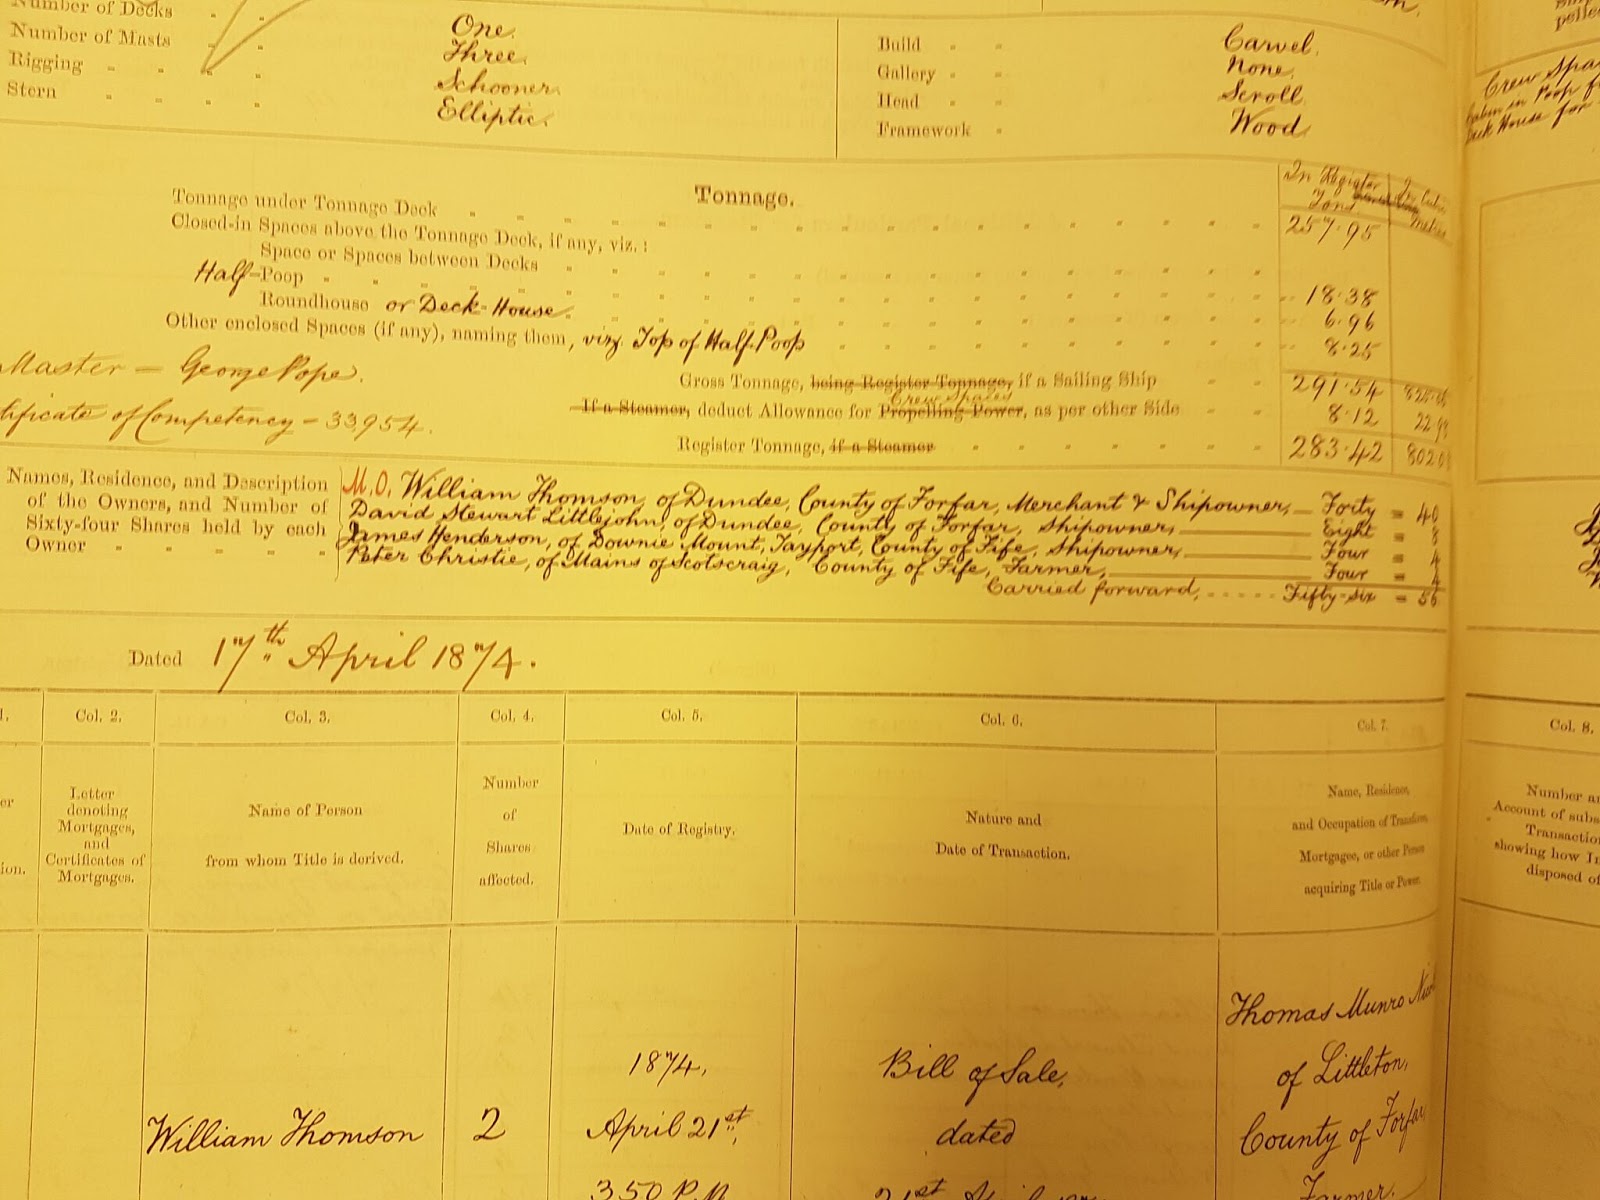 Number of Decks One.
Number of Masts Three.
Rigging Schooner.
Stern Elliptic.
Build Carvel.
Gallery None.
Head Scroll
Framework Wood
Crew Spa
Cabin in Poop f
Deck House for
Tonnage.
In Register Tons.
Tonnage under Tonnage Deck 257.95
Closed-in Spaces above the Tonnage Deck, if any, viz.:
Space or Spaces between Decks
Half-Poop 18.38
Roundhouse or Deck-House 6.96
Other enclosed Spaces (if any), naming them, viz Top of Half-Poop 8.25
Master – George Pope.
Gross Tonnage, being Register Tonnage, if a Sailing Ship 291.54
Crew Spaces
If a Steamer, deduct Allowance for Propelling Power, as per other Side 8.12
tificate of Competency – 33,954.
Register Tonnage, if a Steamer 283.42
Names, Residence, and Description of the Owners, and Number of Sixty-four Shares held by each Owner
M.O. William Thomson, of Dundee, County of Forfar, Merchant & Shipowner, — Forty = 40
David Stewart Littlejohn, of Dundee, County of Forfar, Shipowner, — Eight = 8
James Henderson, of Downie Mount, Tayport, County of Fife, Shipowner, — Four = 4
Peter Christie, of Mains of Scotscraig, County of Fife, Farmer, — Four = 4
Carried forward, Fifty-six = 56
Dated 17th April 1874.
Col. 2. Col. 3. Col. 4. Col. 5. Col. 6. Col. 7. Col. 8.
Letter denoting Mortgages, and Certificates of Mortgages.
Name of Person from whom Title is derived.
Number of Shares affected.
Date of Registry.
Nature and Date of Transaction.
Name, Residence, and Occupation of Transferee, Mortgagee, or other Person acquiring Title or Power.
Number an
Account of subs
Transaction
showing how In
disposed of
William Thomson
2
1874.
April 21st,
3.50 P.M.
Bill of Sale,
dated
21st
Thomas Munro
of Littleton,
County of Forfar
Farmer.